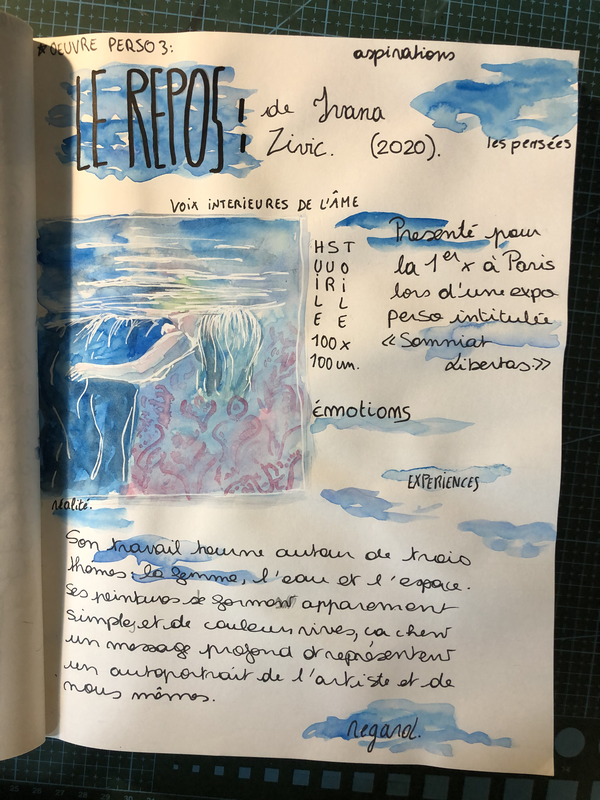 ★ OEUVRE PERSO 3:
aspirations
LE REPOS! de Ivana
Zivic. (2020).
les pensées
VOIX INTERIEURES DE L'ÂME
HUILE
SUR
TOILE
100 x
100 cm.
Presenté pour
la 1er x à Paris
lors d'une expo
perso intitulée
«Somniat
Libertas.»
émotions
EXPERIENCES
réalité.
Son travail tourne autour de trois
thèmes la femme, l'eau et l'espace.
Ses peintures de apparement
simples, et de couleurs vives, cachent
un message profond et représentent
un autoportrait de l'artiste et de
nous mêmes.
regard.